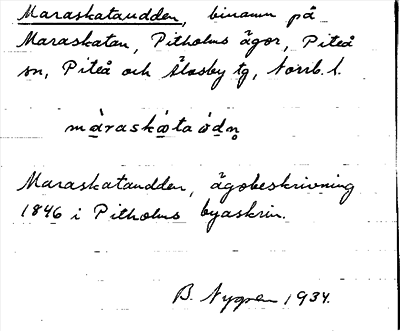 Maraskataudden, binamn på
Maraskatan, Pitholms ägor, Piteå
sn, Piteå och Älvsby tg, Norrb. l.
màraskàtaòdn̥
Maraskataudden, ägobeskrivning
1846 i Pitholms byaskrin.
B. Nygren 1934.